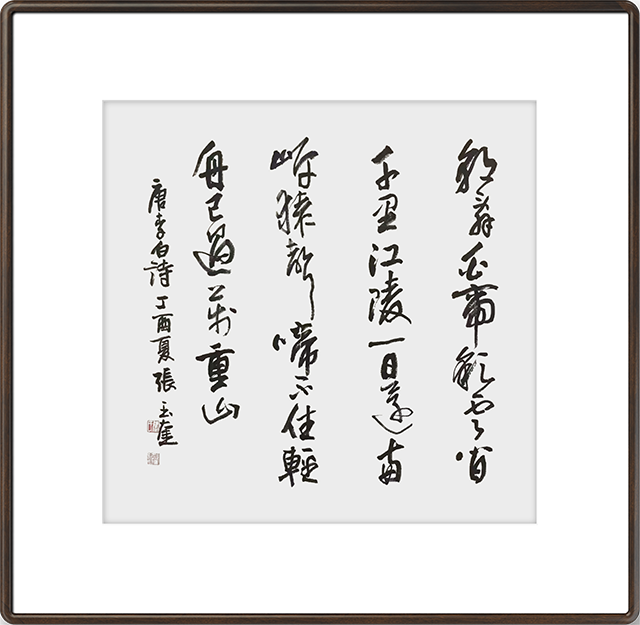 朝辭白帝彩雲間
千里江陵一日還兩
岸猿聲啼不住輕
舟已過萬重山
唐李白詩丁酉夏張玉奎